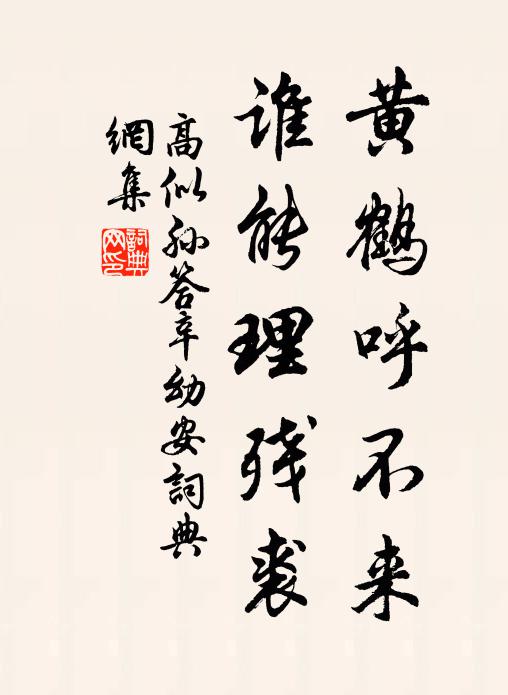 黄鹤呼不来
谁能理残裘
高似孙答辛幼安詞典
網集
詞典網印